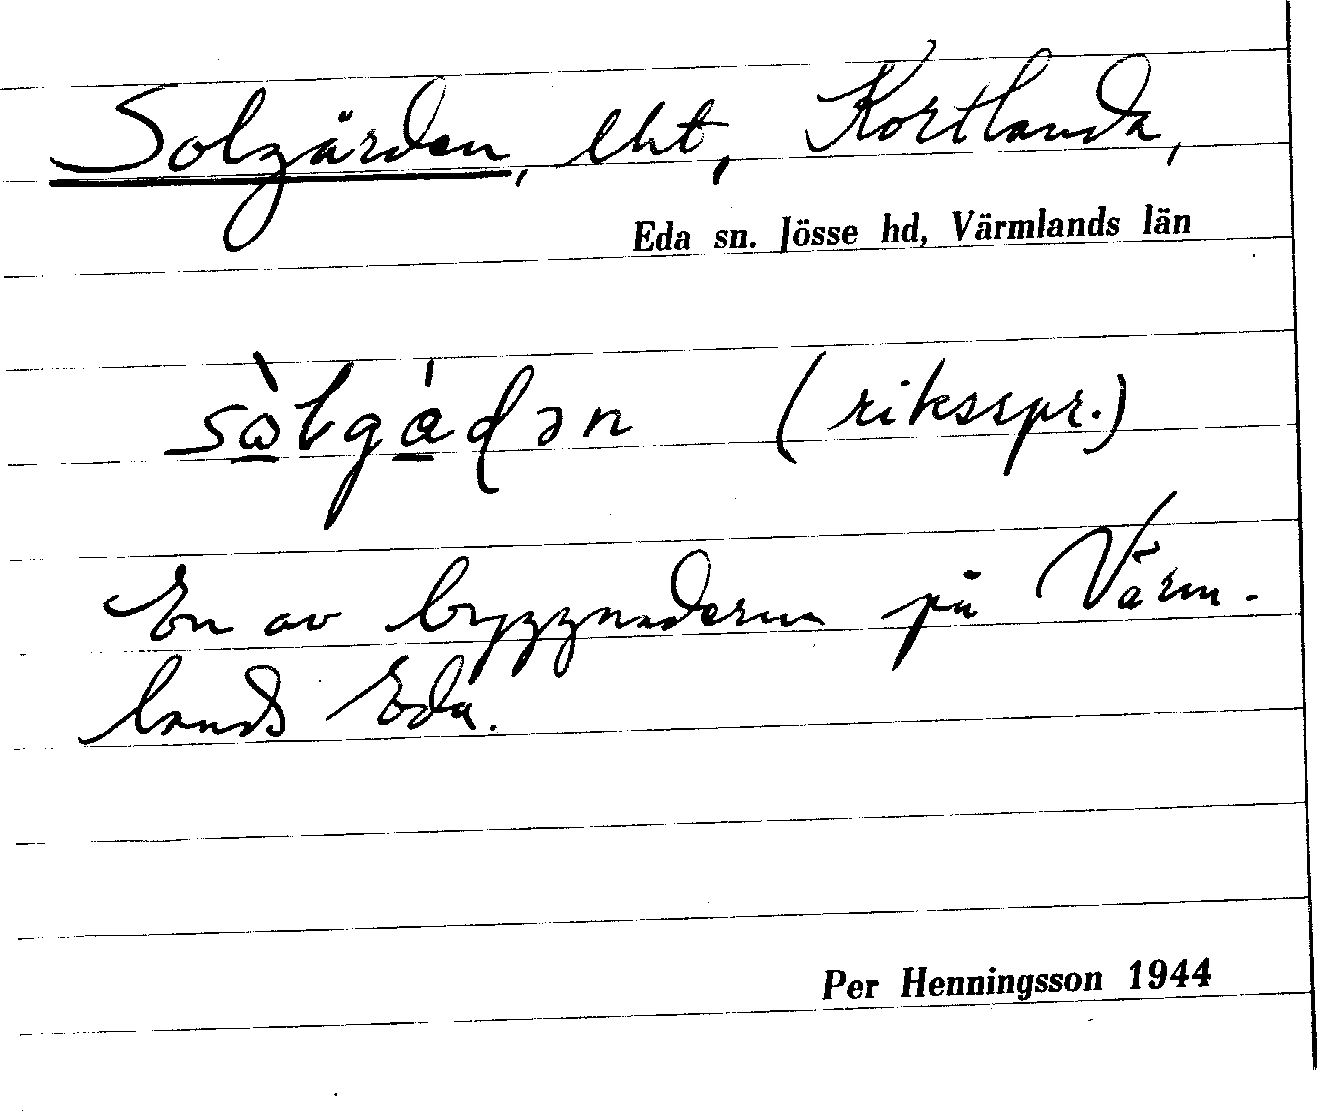 Solgården, lht, Kortlanda,
Eda sn. Jösse hd, Värmlands län
(riksspr.)
En av byggnaderna på Värm-
lands Eda.
Per Henningsson 1944